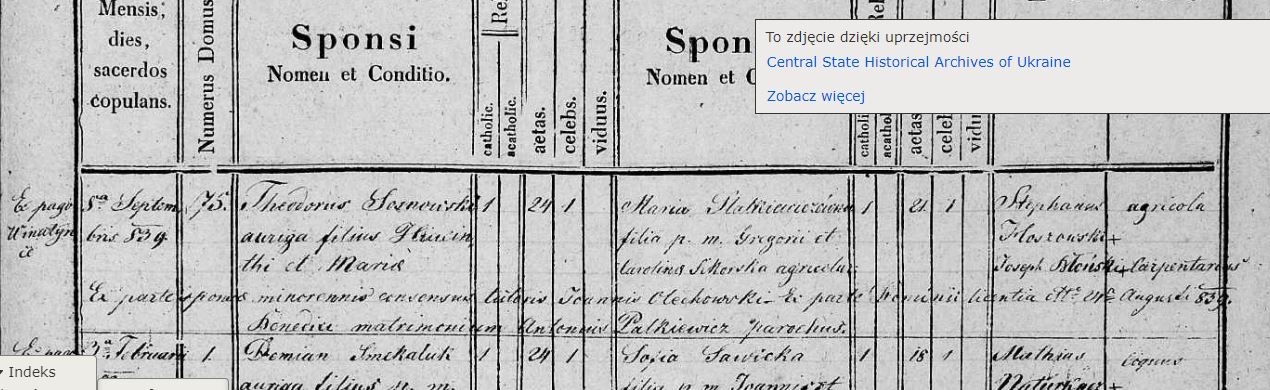 Mensis,
dies,
sacerdos
copulans.
Numerus Domus
Sponsi
Nomen et Conditio.
catholic.
acatholic.
aetas.
celebs.
viduus.
Spon
Nomen et C
catholic
acatho
aetas
celeb
vidu
To zdjęcie dzięki uprzejmości
Central State Historical Archives of Ukraine
Zobacz więcej
Ex pago 8va Septem 75. Theodorus Sosnowski 1 24 1 Maria 1 21 1 Stephanus agricola
bris 839. auriga filius Hiacin filia p. m. Gregorii et
thi et Mariæ Sikorska agricolar Joseph Carpentarius
Ex parte sponsæ minorennis consensus tutoris Joannis Olechowski Ex parte Dominii licentia Augusti 839.
Benedixi matrimonium Antonius Patkiewicz parochus.
Ex pago Februarii 1. Demian Smekaluk 1 24 1 Sofia Sawicka 1 18 1 Mathias
auriga filius p. m. filia p. m. Joannis et
Indeks